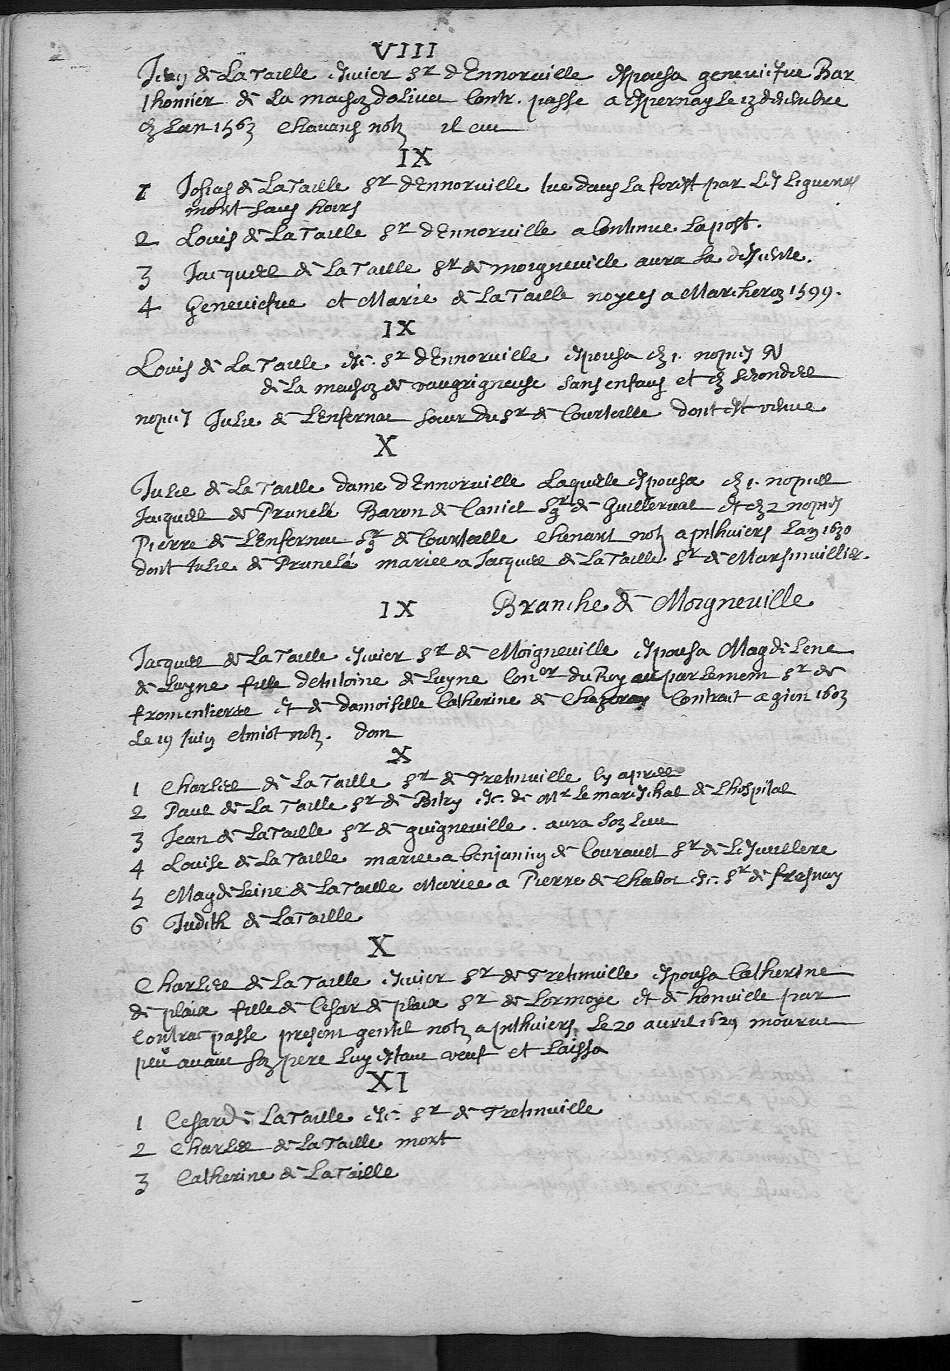 VIII
Jean de La Taille escuier Sr d'Ennorville espousa geneviefve Bar
lhomier de La maison dolivet Contr. passe a Espernay le 13 decembre
en Lan 1563 Chauans notre il eut
IX
1 Josias de LaTaille Sr dEnnorville tue dans la forest par Les Ligueurs
mort sans hoirs
2 Louis de LaTaille Sr dEnnorville a Continue La post.
3 Jacques de LaTaille Sr de moigneville aura sa
4 Geneviefve et Marie de LaTaille noyees a 1599.
IX
Louis de LaTaille esc. Sr dEnnorville espousa en 1. nopces N
de La maison de vaugrigneuse sans enfans et en secondes
nopces Julie de LEnfernat soeur du Sr de Courteille dont est venue
X
Julie de LaTaille dame dEnnorville Laquelle espousa en 1. nopces
Jacques de Prunelé Baron de Caniel Sgr de Guillerval et en 2 nopces
Pierre de LEnfernat Sgr de Courteille Chenart notre a pthuiers Lan 1630
dont Julie de Prunelé mariee a Jacques de LaTaille Sr de Marsinvillier.
IX Branche de Moigneville
Jacques de LaTaille escuier Sr de Moigneville espousa Magdelene
de Luyne fille dAntoine de Luyne Conor du Roy au parlement Sr de
fromentieres et de damoiselle Catherine de Chazeray Contract a gien 1603
le 19 Juin notre. dont
X
1 Charles de LaTaille Sr de Tretinville cy apres
2 Paul de La Taille Sr de Bitry esc. de Mr le mareschal de Lhospital
3 Jean de LaTaille Sr de guigneville. aura son lieu
4 Louise de LaTaille mariee a benjamin de Couraut Sr de
5 Magdeleine de LaTaille Mariee a Pierre de Chabot esc. Sr de fresnay
6 Judith de LaTaille
X
Charles de LaTaille escuier Sr de Tretinville espousa Catherine
de plaix fille de Cesar de plaix Sr de Lormoye et de honville par
Contrac passe present gentil notre a pthuiers Le 20 avril 1629 mourut
peu avant son pere Luy estant veuf et Laissa
XI
1 Cesar de LaTaille esc. Sr de Tretinville
2 Charles de LaTaille mort
3 Catherine de LaTaille